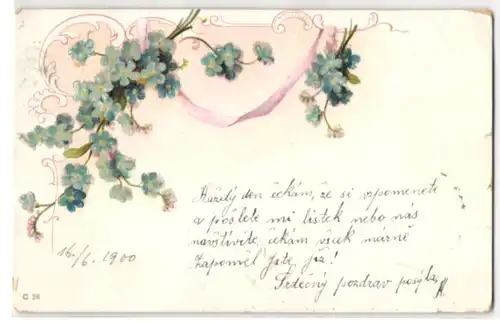 Každý den čekám, že si vzpomeneti
a pošlete mi lístek nebo nás
navštívíte, čekám však márně
Zapoměl jste již!
Srdečný pozdrav posýlá
16./6. 1900
G 26